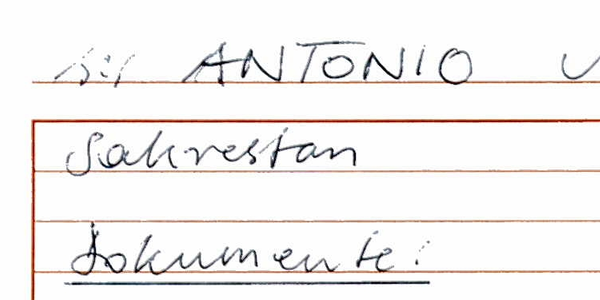 ANTONIO
Sakrestan
Dokumente: